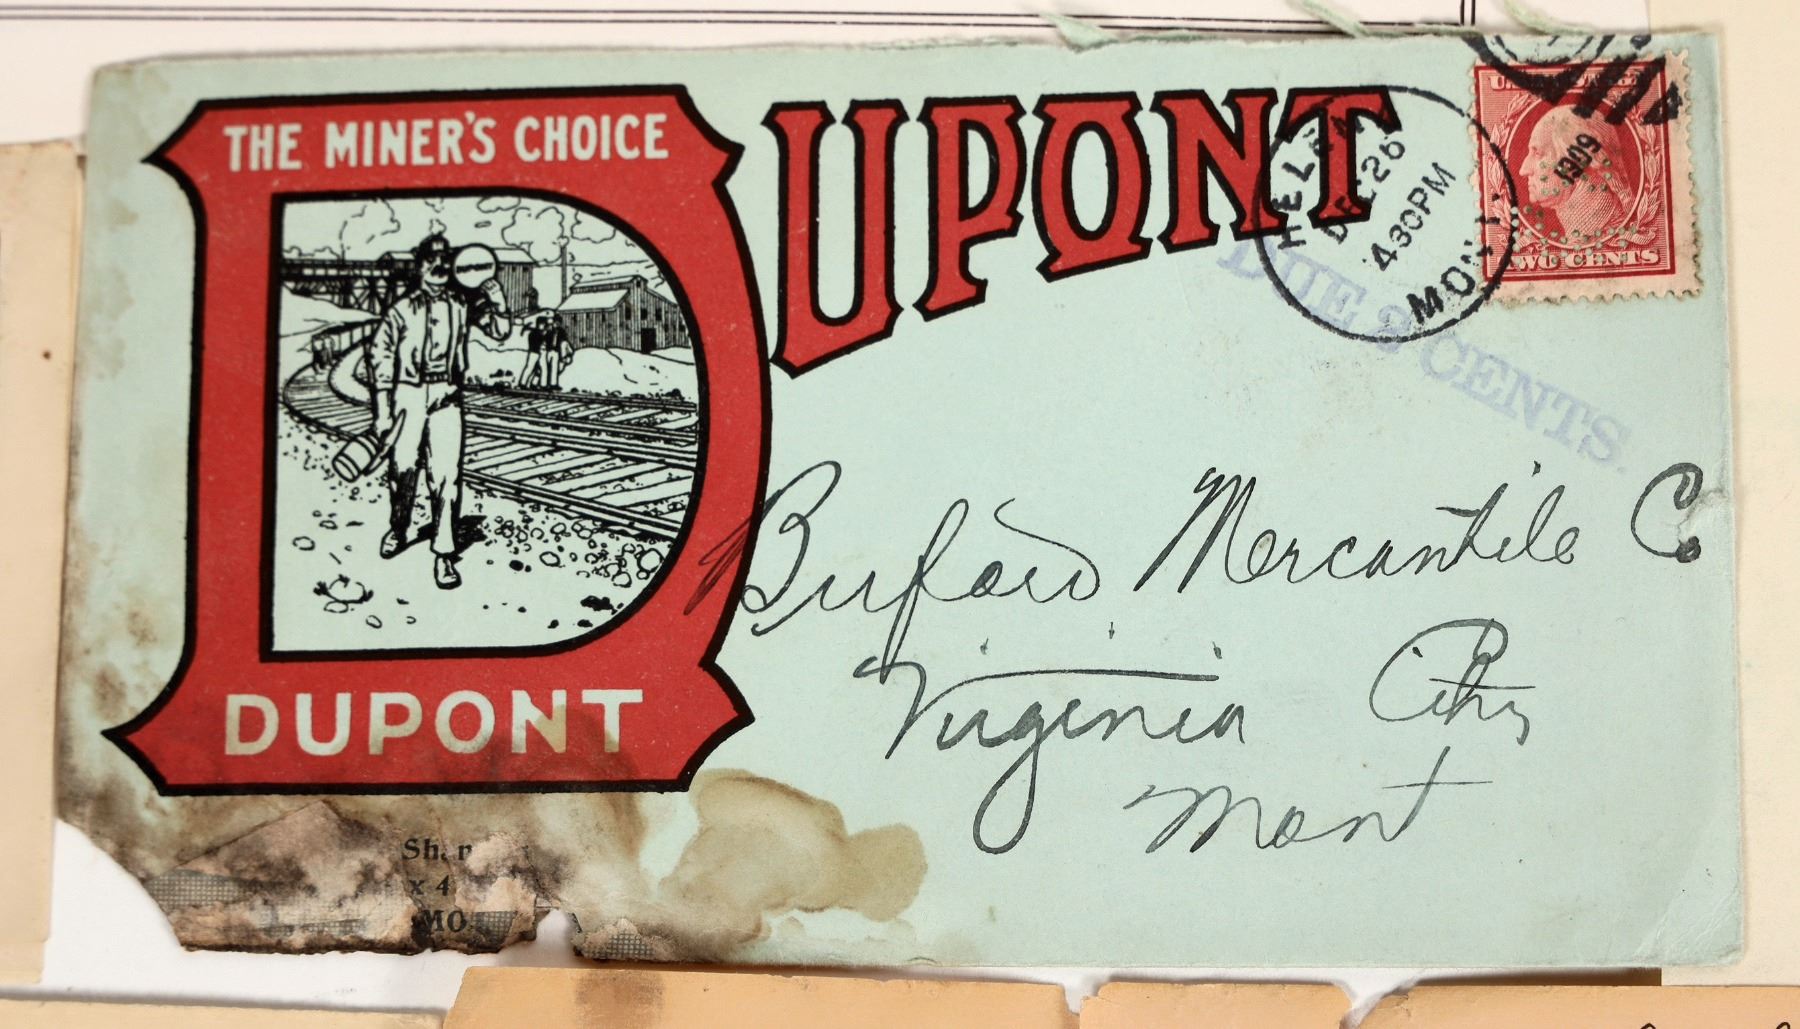 THE MINER'S CHOICE
DUPONT
DUPONT
HELENA MONT.
DEC 26
4 30 PM
1909
TWO CENTS
DUE 2 CENTS.
Buford Mercantile Co
Virginia City
Mont
x 4
MO